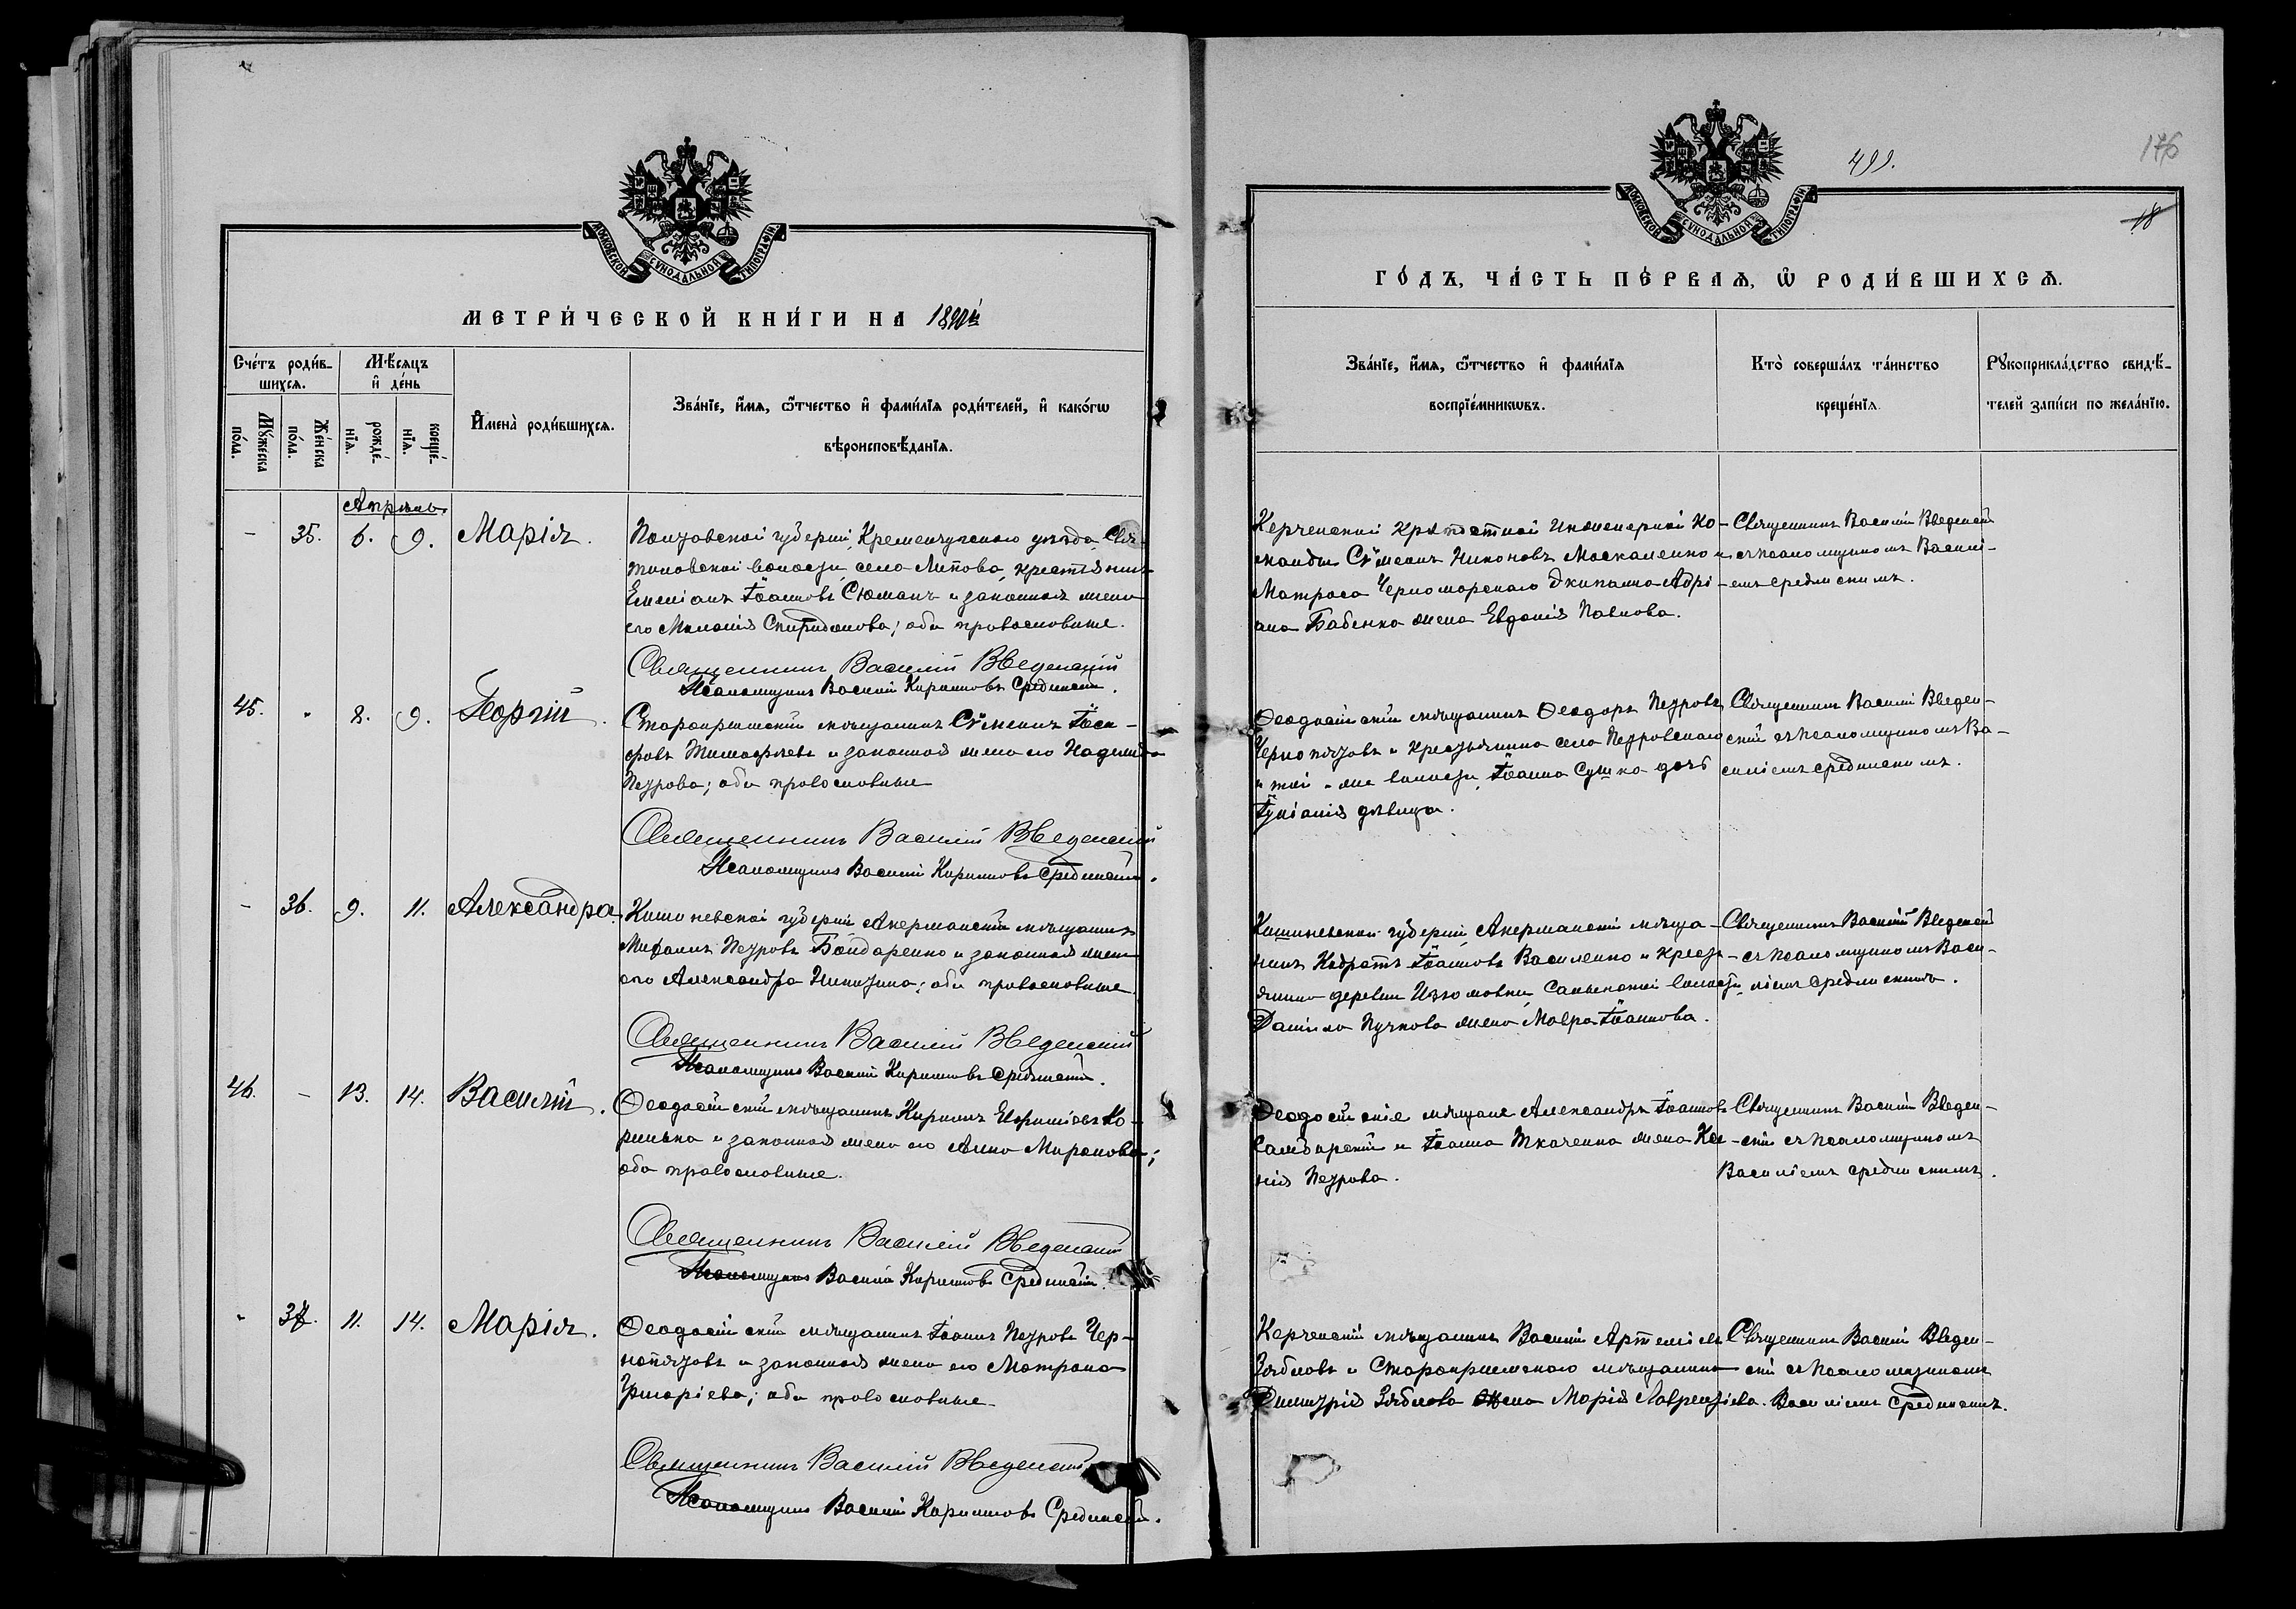 МОСКОВСКОЙ СѴНОДАЛЬНОЙ ТИПОГРАФІИ
МЕТРИ́ЧЕСКОЙ КНИ́ГИ НА 1890й
Сче́тъ роди́в-
шихся.
Мꙋ́жеска
по́ла.
Же́нска
по́ла.
Мѣ́сяцъ
и҆ де́нь
рожде́-
нїѧ.
креще́-
нїѧ.
И҆мена̀ роди́вшихсѧ.
Зва́нїе, и҆́мѧ, ѻ҆́тчество и҆ фами́лїѧ роди́телей, и҆ како́гѡ
вѣроисповѣ́данїѧ.
Апрѣль
- 35. 6. 9. Марія.
Полтавской губерніи, Кременчугскаго уѣзда,
волости село Липово, крестьянинъ
Емеліанъ Іоанновъ Сюманъ и законная жена
его Меланія Спиридонова; оба православные.
Священникъ Василій Введенскій
Псаломщикъ Василій Кирилловъ Срединскій.
45. " 8. 9. Георгій.
Старокрымскій мѣщанинъ Сѵмеонъ Іоси-
фовъ Тимофѣевъ и законная жена его Надежда
Петрова; оба православные
Священникъ Василій Введенскій
Псаломщикъ Василій Кирилловъ Срединскій.
- 36. 9. 11. Александра.
Кишиневской губерніи Акерманскій мѣщанинъ
Михаилъ Петровъ Бондаренко и законная жена
его Александра Никитина; оба православные
Священникъ Василій Введенскій
Псаломщикъ Василій Кирилловъ Срединскій.
46. - 13. 14. Василій.
Ѳеодосійскій мѣщанинъ Кириллъ Ко-
и законная жена его Анна Миронова;
оба православные.
Священникъ Василій Введенскій
Псаломщикъ Василій Кирилловъ Срединскій.
" 37. 11. 14. Марія.
Ѳеодосійскій мѣщанинъ Іоаннъ Петровъ Чер-
нопятовъ и законная жена его Матрона
Григоріева; оба православные
Священникъ Василій Введенскій
Псаломщикъ Василій Кирилловъ Срединскій.
499.
176
18
МОСКОВСКОЙ СѴНОДАЛЬНОЙ ТИПОГРАФІИ
ГО́ДЪ, ЧА́СТЬ ПЕ́РВАѦ, Ѡ҆ РОДИ́ВШИХСѦ.
Зва́нїе, и҆́мѧ, ѻ҆́тчество и҆ фами́лїѧ
воспрїе́мникѡвъ.
Кто̀ соверша́лъ та́инство
креще́нїѧ
Рꙋкоприкла́дство свидѣ́-
телей за́писи по жела́нїю.
Керченской крѣпостной инженерной ко-
манды Сѵмеонъ Никоновъ Москаленко и
Матроса Черноморскаго Экипажа Адрі-
ана Бабенка жена Евдокія Павлова.
Священникъ Василій Введенскій
съ псаломщикомъ Василі-
емъ Срединскимъ.
Ѳеодосійскій мѣщанинъ Ѳеодоръ Петровъ
Чернопятовъ и крестьянина села Петровскаго
и той-же волости, Іоанна Сушко дочь
дѣвица.
Священникъ Василій Введен-
скій съ псаломщикомъ Ва-
силіемъ Срединскимъ.
Кишиневской губерніи, Акерманскій мѣща-
нинъ Кодратъ Іоанновъ Василенко и крест-
янина деревни Изюмовки, Салынской волости,
Даніила Пучкова жена Мавра Іоаннова.
Священникъ Василій Введенскій
съ псаломщикомъ Васи-
ліемъ Срединскимъ.
Ѳеодосійскіе мѣщане Александръ Іоанновъ
и Іоанна Ткаченка жена Ксе-
нія Петрова.
Священникъ Василій Введен-
скій съ псаломщикомъ
Василіемъ Срединскимъ.
Керченскій мѣщанинъ Василій Артеміевъ
Зябловъ и Старокрымскаго мѣщанина
Димитрія Зяблова жена Марія Лаврентіева.
Священникъ Василій Введен-
скій съ псаломщикомъ
Василіемъ Срединскимъ.